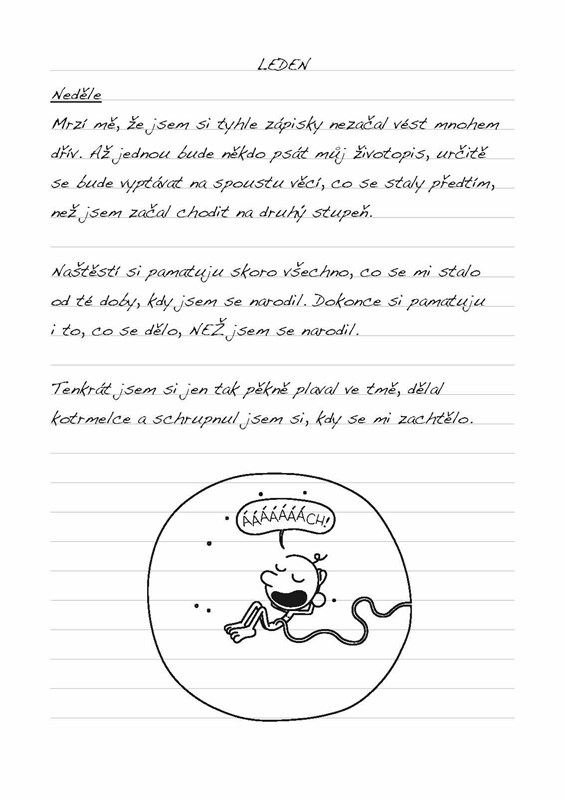 LEDEN
Neděle
Mrzí mě, že jsem si tyhle zápisky nezačal vést mnohem
dřív. Až jednou bude někdo psát můj životopis, určitě
se bude vyptávat na spoustu věcí, co se staly předtím,
než jsem začal chodit na druhý stupeň.
Naštěstí si pamatuju skoro všechno, co se mi stalo
od té doby, kdy jsem se narodil. Dokonce si pamatuju
i to, co se dělo, NEŽ jsem se narodil.
Tenkrát jsem si jen tak pěkně plaval ve tmě, dělal
kotrmelce a schrupnul jsem si, kdy se mi zachtělo.
ÁÁÁÁÁÁÁCH!